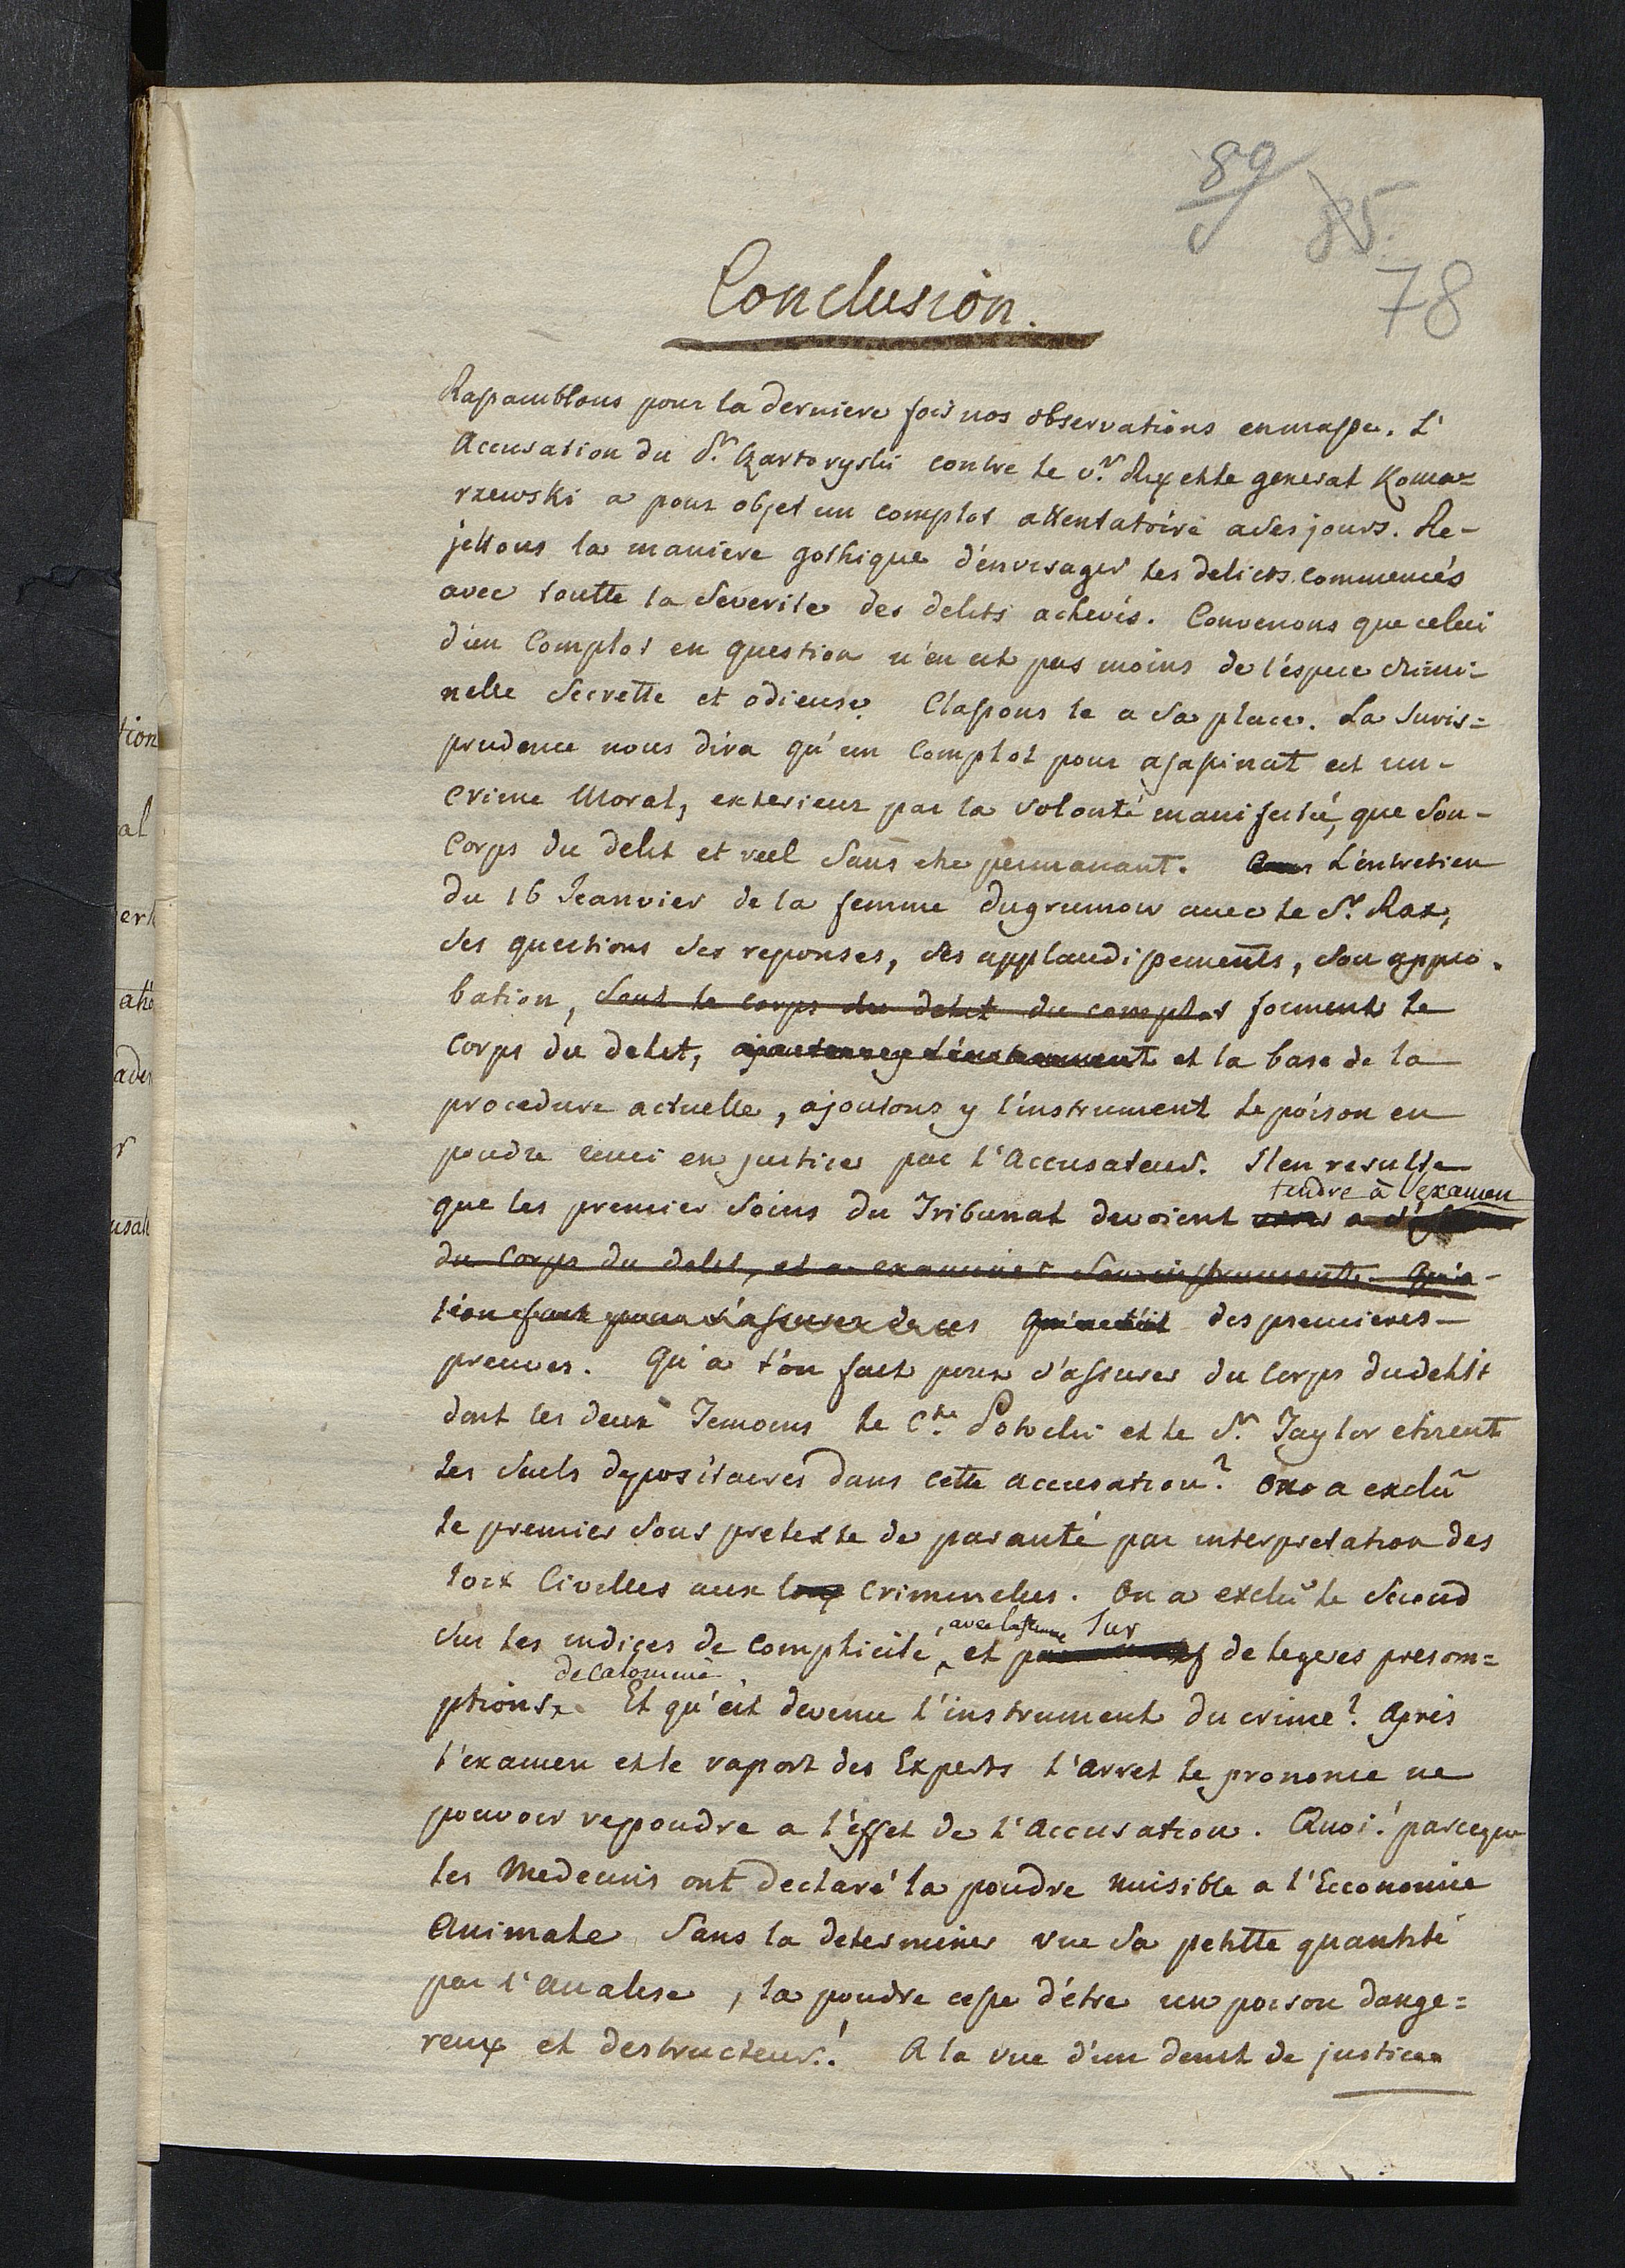 89
85.
78
Conclusion.
Rassamblons pour la derniere fois nos observations enmasse. L'
Accusation du Sr. Czartoryski contre le Sr. Ryx et le general Koma=
rzewski a pour objet un complot attentatoire a ses jours. Re-
jettons la maniere gothique d'envisager les delicts commencés
avec toutte la severite des delits achevés. Convenons que celui
d'un Complot en question n'en est pas moins de l'espece crimi-
nelle secrette et odieuse. Classons le a sa place. La Juris=
prudence nous dira qu'un Complot pour assassinat est un-
crime Moral, exterieur par la volonté manifestée, que son-
Corps du delit et reel sans etre permanant. L'entretien
du 16 Jeanvier de la femme dugrumow avec le Sr. Rix,
ses questions ses reponses, ses applaudissements, son appro-
bation, sont le corps du delit du complot forment le
Corps du delit, ajoutons y l'instrument et la base de la
procedure actuelle, ajoutons y l'instrument le poison en
poudre remi en justice par l'Accusateur. Il en resulte
tendre à l'examen
que les premier soins du Tribunal devoient
du Corps du delit, et a examiner son instrument. Qu'a-
t'on fait pour s'assurer de ces des premieres-
preuves. Qu'a t'on fait pour s'assurer du Corps du delit
dont les deux Temoins le Cte Potocki et le Sr. Taylor etirent
les seuls depositaires dans cette accusation? On a exclû
le premier sous pretexte de paranté par interpretation des
loix Civilles aux loix Criminelles. On a exclû le second
, avec la femme Sur
sur les indices de Complicite, et de legeres presom=
de calomnie
ptions. Et qu'est devenu l'instrument du crime? Après
l'examen et le raport des Experts l'arret le prononce ne
pouvoir repondre a l'effet de l'Accusation. Quoi! parceque
les Medecins ont declaré la poudre nuisible a l'Economie
Animale sans la determiner vue sa petitte quantité
par l'analise, la poudre cesse d'être un poison dange=
reux et destructeur.! A la vue d'un denit de justice